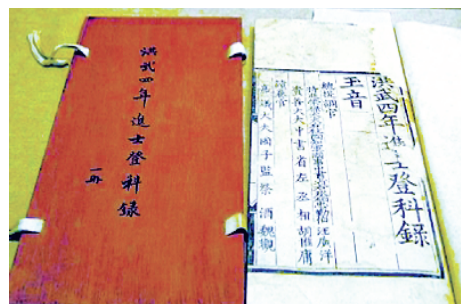 洪武四年進士登科錄
一冊
洪武四年進士登科錄
玉音
總提調官
汪廣洋
中書省左丞相胡惟庸
讀卷官
國子監祭酒魏觀